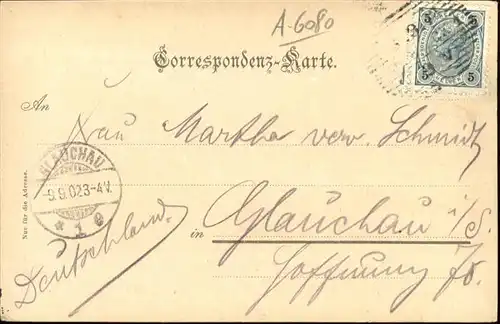 A-6080
5 5
Correspondenz-Karte.
An
Frau Martha verw. Schmidt
GLAUCHAU
-9.9.02 3-4 V.
* 1 e
Nur für die Adresse.
in Glauchau i/S.
Deutschland.
Hoffnung 70.